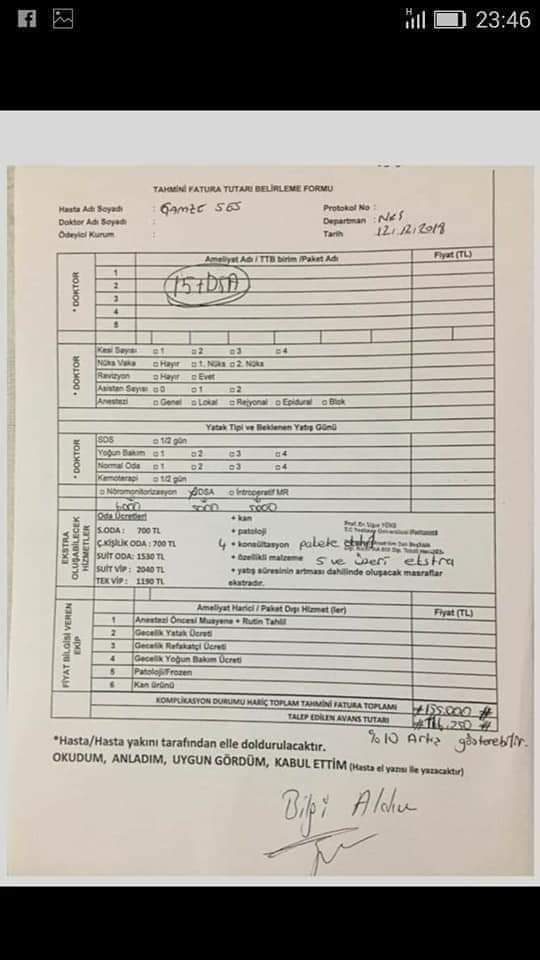 H 23:46
TAHMİNİ FATURA TUTARI BELİRLEME FORMU
Hasta Adı Soyadı : GAMZE SES Protokol No :
Doktor Adı Soyadı : Departman : NRŞ
Ödeyici Kurum : Tarih 12.12.2018
Ameliyat Adı / TTB birim /Paket Adı Fiyat (TL)
* DOKTOR
1
2 15+DSA
3
4
5
* DOKTOR
Kesi Sayısı □ 1 □ 2 □ 3 □ 4
Nüks Vaka □ Hayır □ 1. Nüks □ 2. Nüks
Revizyon □ Hayır □ Evet
Asistan Sayısı □ 0 □ 1 □ 2
Anestezi □ Genel □ Lokal □ Rejyonal □ Epidural □ Blok
Yatak Tipi ve Beklenen Yatış Günü
* DOKTOR
SDS □ 1/2 gün
Yoğun Bakım □ 1 □ 2 □ 3 □ 4
Normal Oda □ 1 □ 2 □ 3 □ 4
Kemoterapi □ 1/2 gün
□ Nöromonitorizasyon DSA □ İntroperatif MR
6000 5000 5000
EKSTRA OLUŞABİLECEK HİZMETLER
Oda Ücretleri • kan
S.ODA : 700 TL • patoloji
Ç.KİŞİLİK ODA : 700 TL 4 • konsültasyon pakete dahil
SUİT ODA: 1530 TL • özellikli malzeme 5 ve üzeri ekstra
SUİT VİP : 2040 TL • yatış süresinin artması dahilinde oluşacak masraflar
TEK VİP : 1190 TL ekstradır.
FİYAT BİLGİSİ VEREN EKİP
Ameliyat Harici / Paket Dışı Hizmet (ler) Fiyat (TL)
1 Anestezi Öncesi Muayene + Rutin Tahlil
2 Gecelik Yatak Ücreti
3 Gecelik Refakatçi Ücreti
4 Gecelik Yoğun Bakım Ücreti
5 Patoloji/Frozen
6 Kan ürünü
KOMPLİKASYON DURUMU HARİÇ TOPLAM TAHMİNİ FATURA TOPLAMI #155.000 #
TALEP EDİLEN AVANS TUTARI
%10 Artış gösterebilir.
*Hasta/Hasta yakını tarafından elle doldurulacaktır.
OKUDUM, ANLADIM, UYGUN GÖRDÜM, KABUL ETTİM (Hasta el yazısı ile yazacaktır)
Bilgi Aldım